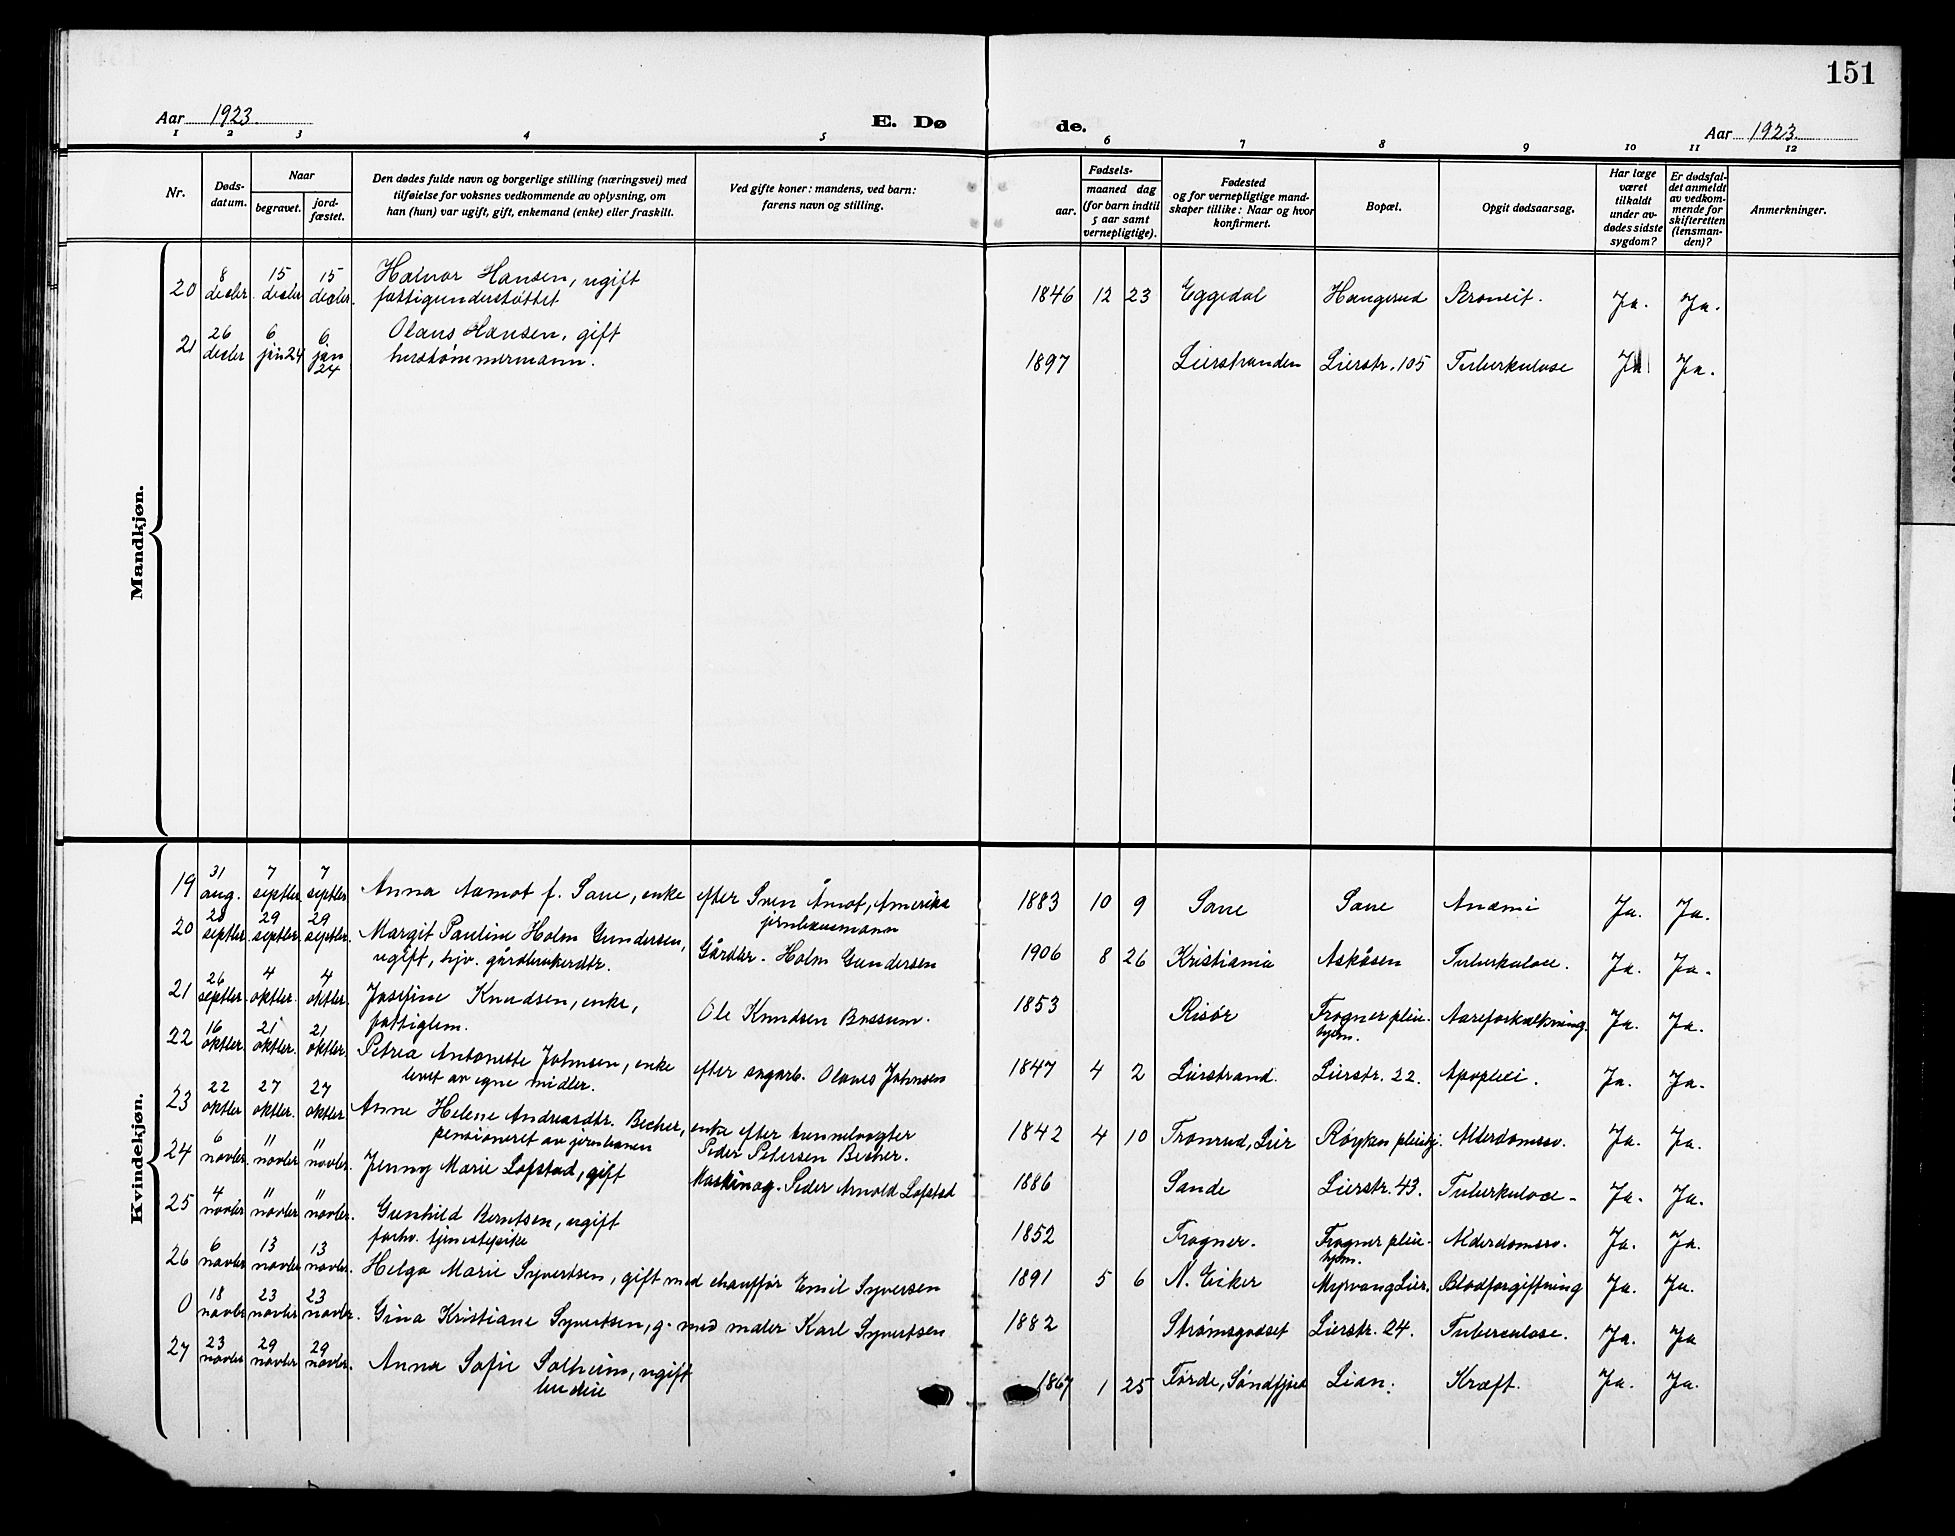 151
Aar 1923.
E. Dø
de.
Aar 1923.
1 2 3 4 5 6 7 8 9 10 11 12
Nr.
Døds-
datum.
Naar
begravet.
jord-
fæstet.
Den dødes fulde navn og borgerlige stilling (næringsvei) med
tilføielse for voksnes vedkommende av oplysning, om
han (hun) var ugift, gift, enkemand (enke) eller fraskilt.
Ved gifte koner: mandens, ved barn:
farens navn og stilling.
Fødsels-
aar.
maaned dag
(for barn indtil
5 aar samt
vernepligtige).
Fødested
og for vernepligtige mand-
skaper tillike: Naar og hvor
konfirmert.
Bopæl.
Opgit dødsaarsag.
Har læge
været
tilkaldt
under av-
dødes sidste
sygdom?
Er dødsfal-
det anmeldt
av vedkom-
mende for
skifteretten
(lensman-
den)?
Anmerkninger.
Mandkjøn.
20 8 decbr. 15 decbr. 15 decbr. Halvor Hansen, ugift
fattigunderstøttet
1846 12 23 Eggedal Haugerud Bronkit. Ja. Ja.
21 26 decbr 6 jan 24 6. jan 24 Olaus Hansen, gift
hustømmermann.
1897 Lierstranden Lierstr. 105 Tuberkulose Ja Ja.
Kvindekjøn.
19 31 aug. 7 septbr 7 septbr Anna Aamot f. Saue, enke efter Sven Åmot, Amerika
1883 10 9 Saue Saue Anæmi Ja. Ja.
20 20 septbr. 29 septbr. 29 septbr. Margit Pauline Holm Gundersen, Gårdbr. Holm Gundersen
ugift, hjv. gårdbrukerdtr.
1906 8 26 Kristiania Askåsen Tuberkulose. Ja. Ja.
21 26 septbr. 4 oktbr. 4 oktbr. Josefine Knudsen, enke, Ole Knudsen Bossum.
fattiglem.
1853 Risør Frogner pleie-
hjem. Aareforkalkning. Ja. Ja.
22 16 oktbr. 21 oktbr. 21 oktbr. Petrea Antonette Johnsen, enke efter sagarb. Olaves Johnsen
levet av egne midler.
1847 4 2 Lierstrand. Lierstr. 22. Apoplexi. Ja. Ja.
23 22 oktbr 27 oktbr. 27 oktbr. Anne Helene Andreasdtr. Becher, enke efter tunnelvogter
pensioneret av jernbanen Peder Petersen Becher.
1842 4 10 Tronrud, Lier Røyken pleiehj. Alderdomssv. Ja. Ja.
24 6 novbr. " novbr. " novbr. Jenny Marie Lofstad, gift Maskinag. Peder Arnold Lofstad
1886 Sande Lierstr. 43. Tuberkulose. Ja. Ja.
25 4 novbr " novbr " novbr. Gunhild Berntsen, ugift
forhv. tjenestepike
1852 Frogner. Frogner pleie-
hjem. Alderdomssv. Ja. Ja.
26 6 novbr 13 novbr 13 novbr. Helga Marie Syvertsen, gift med chauffør Emil Syversen
1891 5 6 N. Eiker Myrvang Lier. Blodforgiftning Ja. Ja.
0 18 novbr 23 novbr 23 novbr. Gina Kristiane Syvertsen, g. med maler Karl Syvertsen
1882 Strømsgodset Lierstr. 24. Tuberculose. Ja. Ja
27 23 novbr 29 novbr 29 novbr. Anna Sofie Solheim, ugift
1867 1 25 Førde, Søndfjord Lian. Kræft. Ja. Ja.